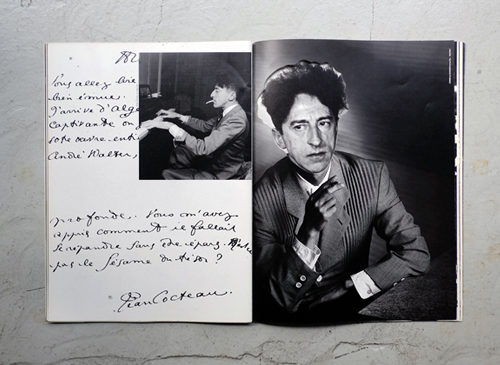 Vous allez
bien émue.
J'arrive d'Alge
captivante on
votre œuvre enti
André Walter,
profonde. Vous m'avez
appris comment il fallait
se répandre sans être épars.
pas le Sésame du
Jean Cocteau.